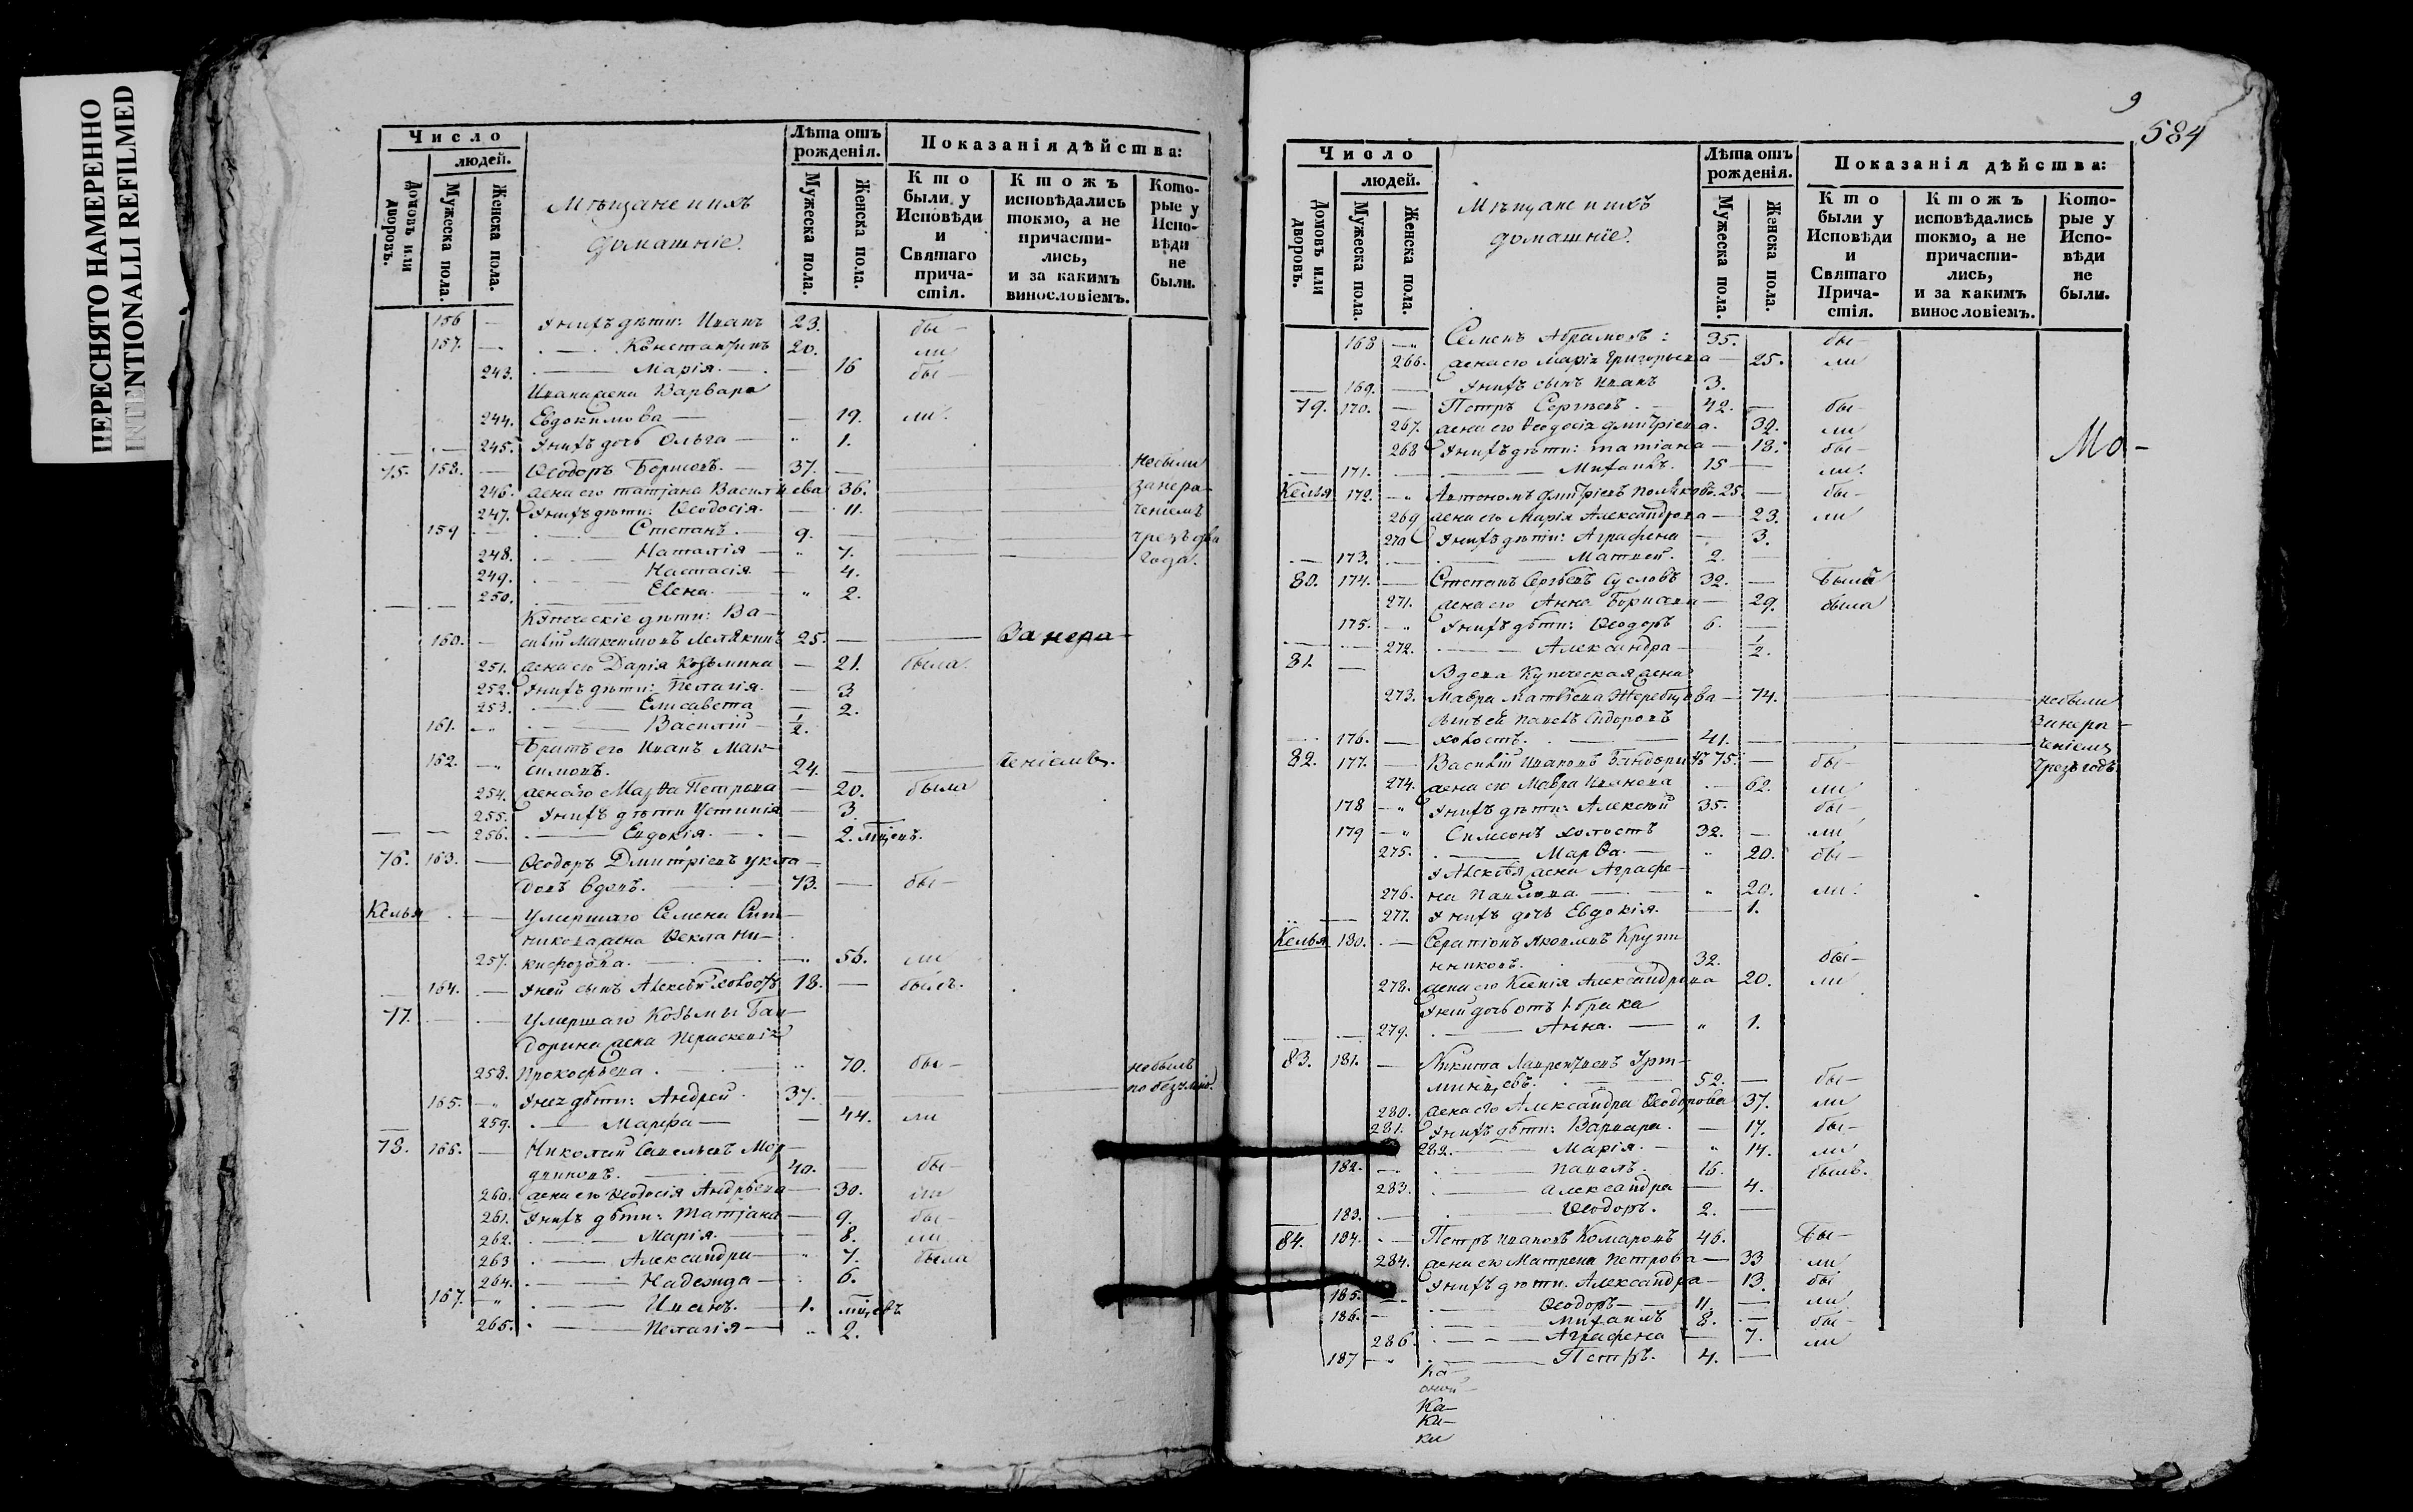 ПЕРЕСНЯТО НАМЕРЕННО
INTENTIONALLI REFILMED
Число
людей.
Домовъ или дворовъ.
Мужеска пола.
Женска пола.
Мѣщане и ихъ
домашніе.
Лѣта отъ рожденія.
Мужеска пола.
Женска пола.
Показанія дѣйства:
Кто были у Исповѣди и Святаго причастія.
Ктожъ исповѣдались токмо, а не причастились, и за какимъ винословіемъ.
Которые у Исповѣди не были.
156 — У нихъ дѣти: Иванъ 23. бы-
157. — Константинъ 20. ли
243. — Марія. — 16 бы-
Ивана жена Варвара
244. Евдокимова — 19. ли.
245. У нихъ дочь Ольга — 1.
75. 158. — Ѳеодоръ Борисовъ. — 37. — не были
246. жена его Татіана Василиева 36. за нера-
247. У нихъ дѣти: Ѳеодосія. — 11. чениемъ
159 — Степанъ. — 9. — чрезъ два
248. — Наталія — 7. года.
249. — Настасія — 4.
250. — Елена. — 2.
Купеческіе дѣти: Ва-
160. — силій Максимовъ 25. — За нера-
251. жена его Дарія Козьмина — 21. была
252. У нихъ дѣти: Пелагія. — 3
253. — Елисавета — 2.
161. — Василій — 1/2.
Братъ его Иванъ Мак-
162. — симовъ. 24. — ченіемъ.
254. жена его Марѳа Петрова — 20. была
255. У нихъ дѣти Устинія — 3.
256. — Евдокія. — 2. мѣсяцъ.
76. 163. — Ѳеодоръ Дмитріевъ
вдовъ. 73. — бы-
Келья — Умершаго Семена
жена Ѳекла Ни-
257. кифорова. — 56. ли
164. — У ней сынъ Алексѣй холостъ 18. — былъ.
77. — Умершаго Козьмы Бан-
дорина жена Параскевія
258. Прокофьева. — 70. бы- не былъ
165. — У нея дѣти: Андрей. 37. — по безумію.
259. — Марѳа — 44. ли
78. 166. — Николай Савельевъ Мор-
двиновъ. — 40. — бы-
260. жена его Ѳеодосія Андрѣева — 30. ли
261. У нихъ дѣти: Татіана — 9. бы-
262. — Марія. — 8. ли
263 — Александра — 7. была
264. — Надежда — 6.
167. — Иванъ. — 1. мѣсяцъ
265. — Пелагія — 2.
9
584
Число
людей.
Домовъ или дворовъ.
Мужеска пола.
Женска пола.
Мѣщане и ихъ
домашніе.
Лѣта отъ рожденія.
Мужеска пола.
Женска пола.
Показанія дѣйства:
Кто были у Исповѣди и Святаго Причастія.
Ктожъ исповѣдались токмо, а не причастились, и за какимъ винословіемъ.
Которые у Исповѣди не были.
168 — Семенъ Абрамовъ: 35. бы-
266. жена его Марія Григорьева — 25. ли
169. — У нихъ сынъ Иванъ 3.
79. 170. — Петръ Сергѣевъ. — 42. — бы-
267. жена его Ѳеодосія Дмитріева. 39. ли
268 У нихъ дѣти: Татіана — 18. бы-
Мо-
171. — Михаилъ. 15 — ли.
Келья 172. — Автономъ Дмитріевъ Поляковъ. 25. — бы-
269 жена его Марія Александрова — 23. ли
270 У нихъ дѣти: Аграфена — 3.
173. — Матвей. 2. —
80. 174. — Степанъ Сергѣевъ Сусловъ 32. — былъ
271. жена его Анна Борисова — 29. была
175. — У нихъ дѣти: Ѳеодоръ 6. —
272. — Александра — 1/2.
81. — Вдова Купеческая жена
273. Мавра Матвѣева Жеребцова — 74. — не были
Павелъ Сидоровъ За нера-
176. — холостъ. — 41. — ченіемъ
82. 177. — Василій Ивановъ Бандоринъ 75. — бы- чрезъ годъ.
274. жена его Мавра Иванова — 62. ли
178 — У нихъ дѣти: Алексѣй 35. бы-
179 — Симеонъ холостъ 32. — ли
275. — Марѳа. — 20. бы-
У Алексѣя жена Аграфе-
276. на Павлова. — 20. ли.
277. У нихъ дочь Евдокія. — 1.
Келья 180. — Серапіонъ Яковлевъ
32. бы-
278. жена его Ксенія Александрова 20. ли
У ней дочь отъ 1 брака
279. — Анна. — 1.
83. 181. — Никита Лаврентьевъ
52. — бы-
280. жена его Александра Ѳеодорова 37. ли
281. У нихъ дѣти: Варвара. — 17. бы-
282. — Марія. — 14. ли
182. — Павелъ. 16. былъ.
283. — Александра — 4.
183. — Ѳеодоръ. 2. —
84. 184. — Петръ Ивановъ Комаровъ 46. бы-
284. жена его Матрена Петрова — 33 ли
У нихъ дѣти. Александра — 13. бы
185. — Ѳеодоръ — 11. — ли
186. — Михаилъ 8. — бы-
286. — Аграфена — 7. ли
187 — Петръ. 4. —